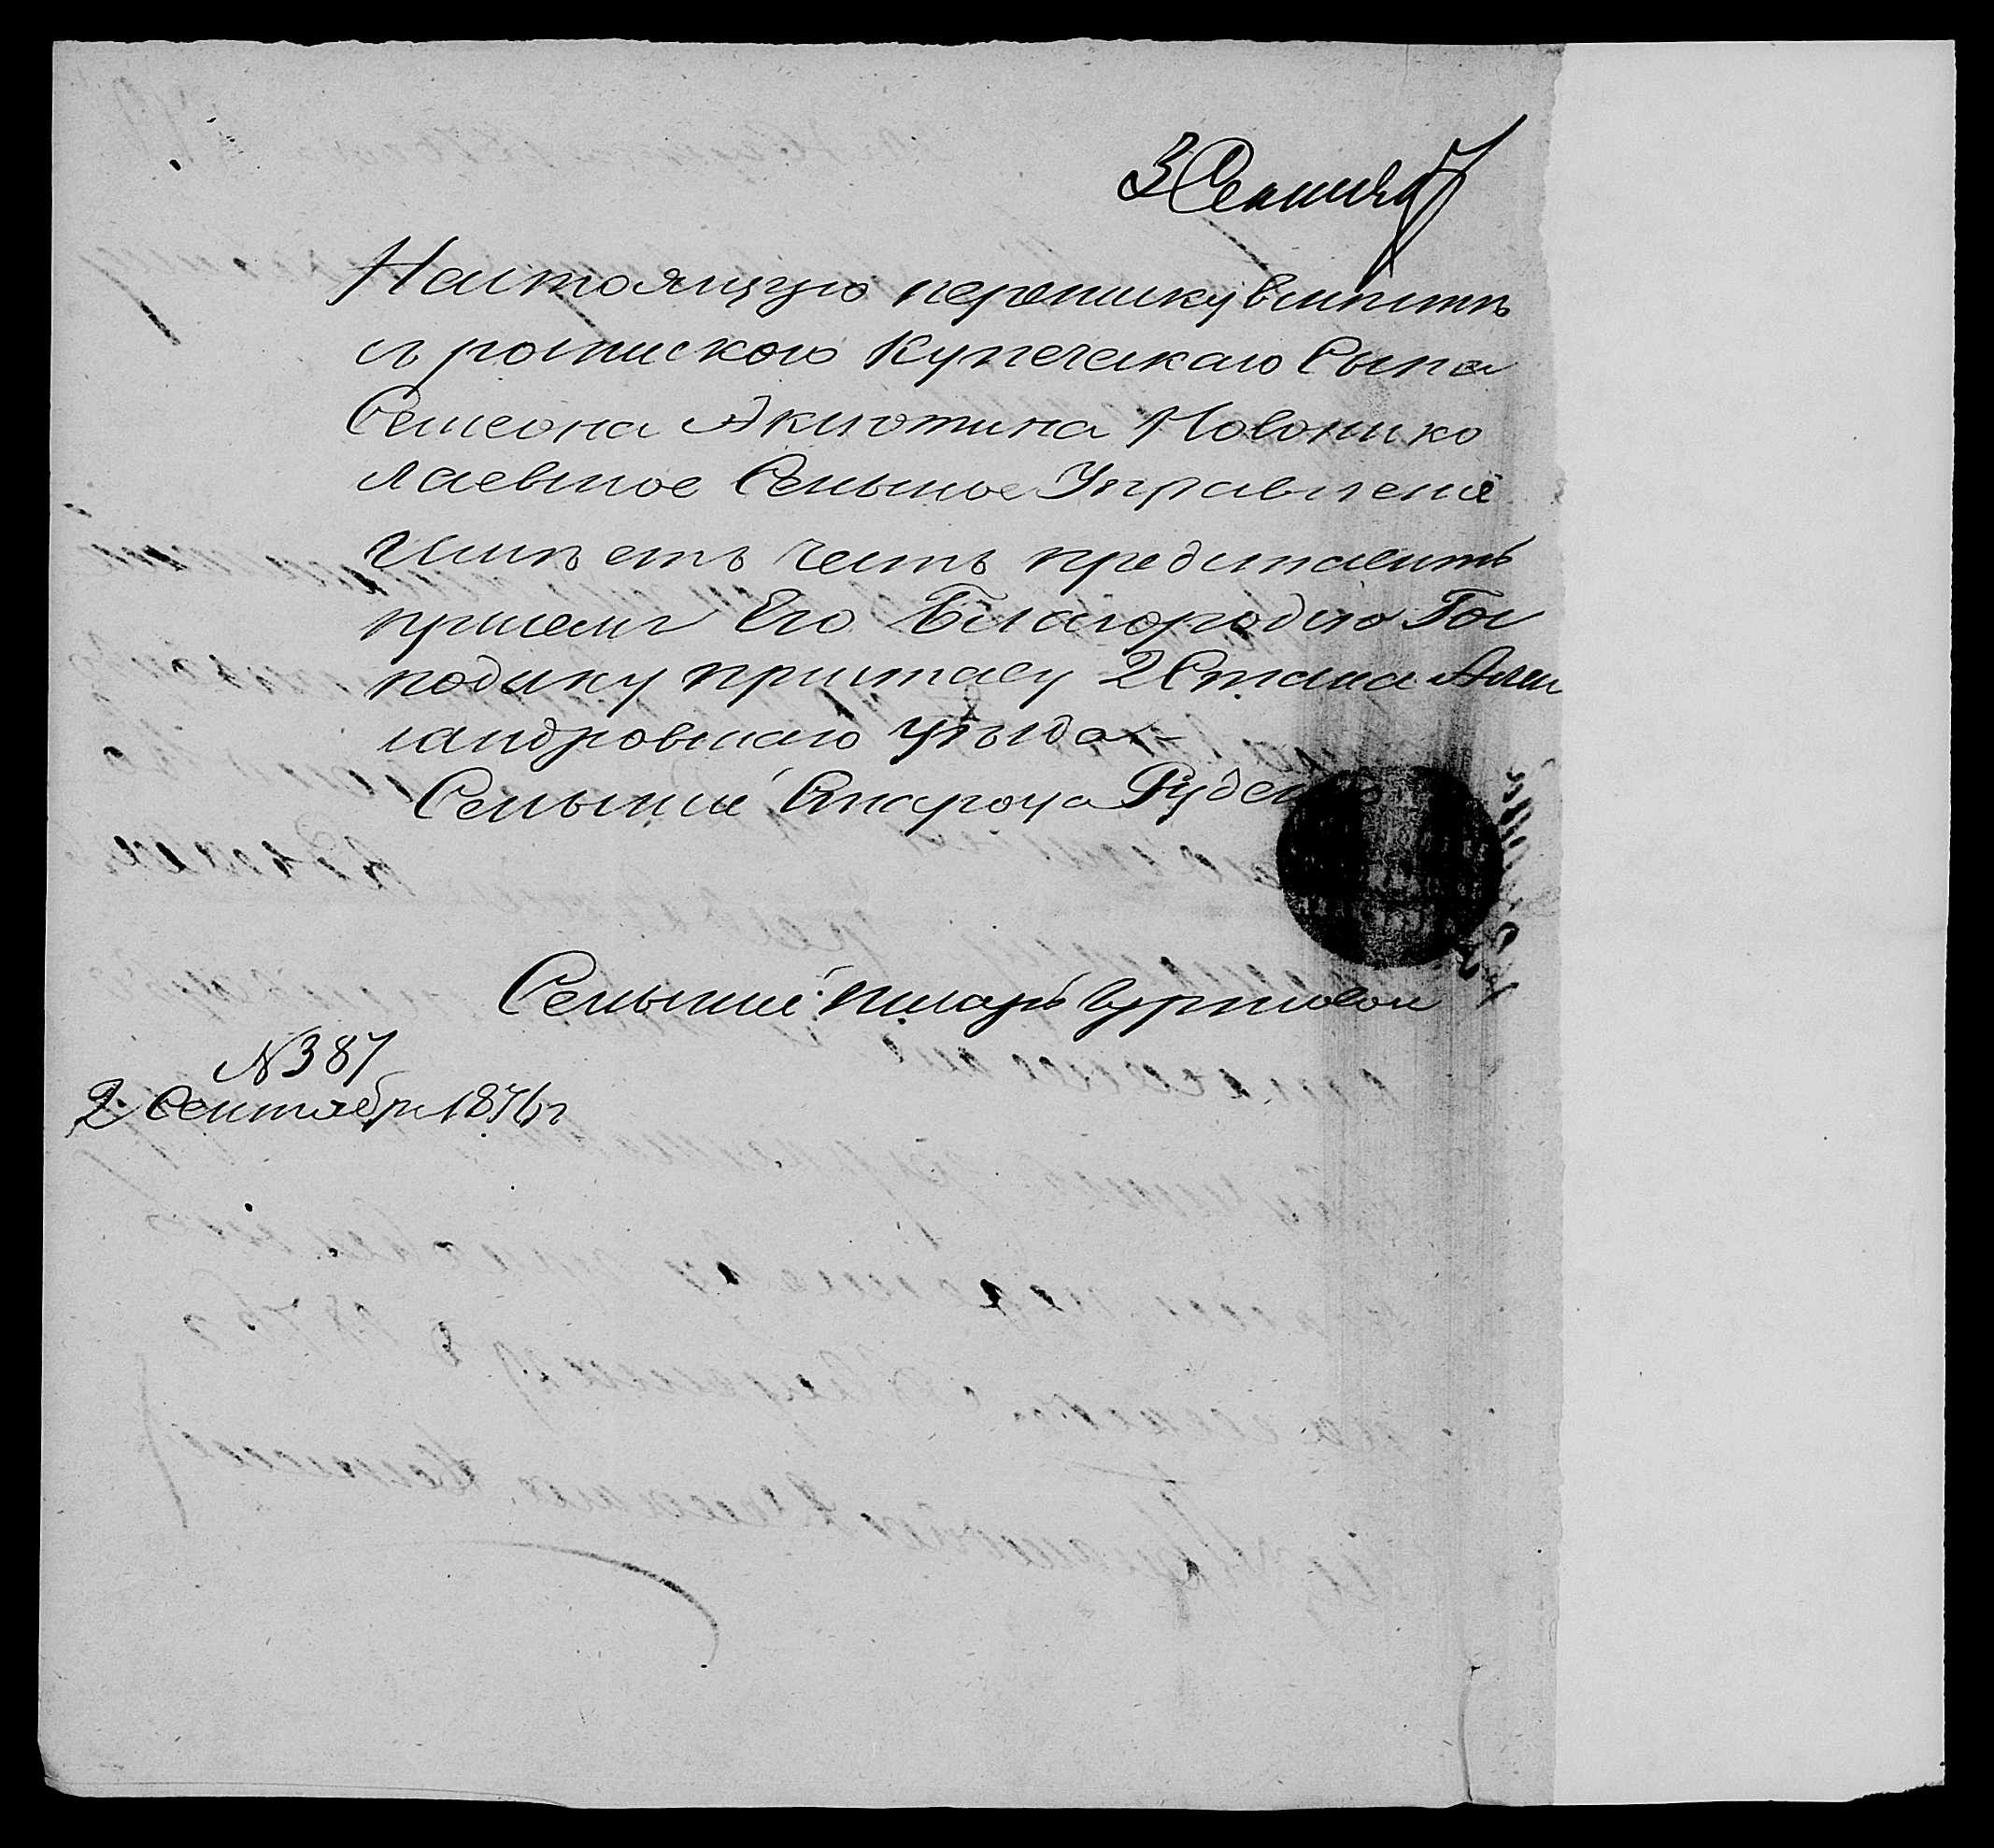 3 Сентяб
Настоящую переписку вместѣ
съ роспискою Купеческаго Сына
Семеона Акимотина Новонико
лаевское Сельское Управленіе
имѣетъ честь представить
при семъ Его Благородію Гос
подину приставу 2 Стана Алек
сандровскаго уѣзда
Сельскій Староста Руденко
Сельскій писарь
№ 387
2 Сентября 1876 г